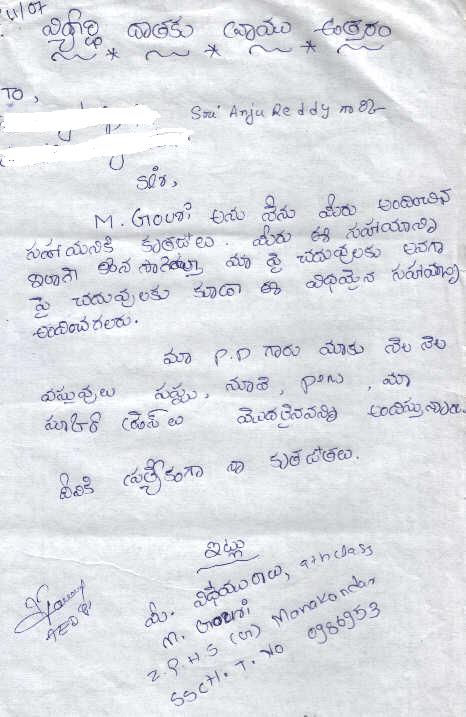 4/07
విద్యార్థి దాతకు వ్రాయు ఉత్తరం
TO,
Sri Anju Reddy గారికి
సార్,
M. Gouri అను నేను మీరు అందించిన
సహాయనికి కృతజ్ఞతలు. మీరు ఈ సహాయాన్ని
ఇలాగే మా పై చదువులకు అనగా
పై చదువులకు కూడా ఈ విధమైన సహాయాన్ని
అందించగలరు.
మా P.D గారు మాకు నెల నెల
వస్తువులు సబ్బు, నూనె, pen, మా
మొదలైనవన్ని అందిస్తున్నారు.
వీటికి ప్రత్యేకంగా నా కృతజ్ఞతలు.
ఇట్లు
మీ విధేయురాలు, 9th class
M. Gouri
Z.P.H.S (G) Manakondur
SSCH. T. No 0986953